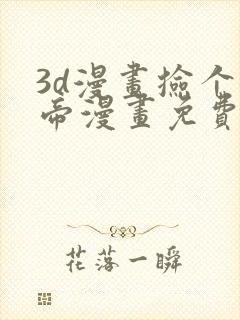 3d漫畫撿个
帝漫畫免費
花落一瞬